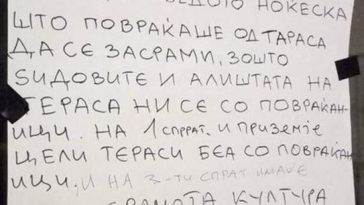 НОЌЕСКА
ШТО ПОВРАЌАШЕ ОД ТАРАСА
ДА СЕ ЗАСРАМИ, ЗОШТО
ЅИДОВИТЕ И АЛИШТАТА НА
ТЕРАСА НИ СЕ СО ПОВРАЌАН-
ИЦИ. НА 1 СПРРАТ. И ПРИЗЕМЈЕ
ЦЕЛИ ТЕРАСИ БЕА СО ПОВРАЌАН
ИЦИ, И НА 3-ТИ СПРАТ ИМАШЕ
КУЛТУРА